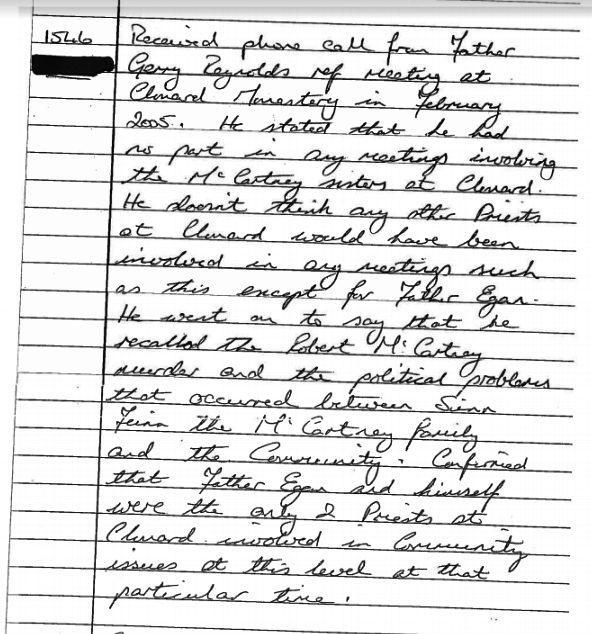 1546 Received phone call from Father
Gerry Reynolds ref meeting at
Clonard Monestery in February
2005. He stated that he had
no part in any meetings involving
the McCartney sisters at Clonard.
He doesn't think any other Priests
at Clonard would have been
involved in any meetings such
as this except for Father Egan.
He went on to say that he
recalled the Robert McCartney
murder and the political problems
that occurred between Sinn
Feinn the McCartney family
and the Community. Confirmed
that Father Egan and himself
were the only 2 Priests at
Clonard involved in Community
issues at this level at that
particular time.